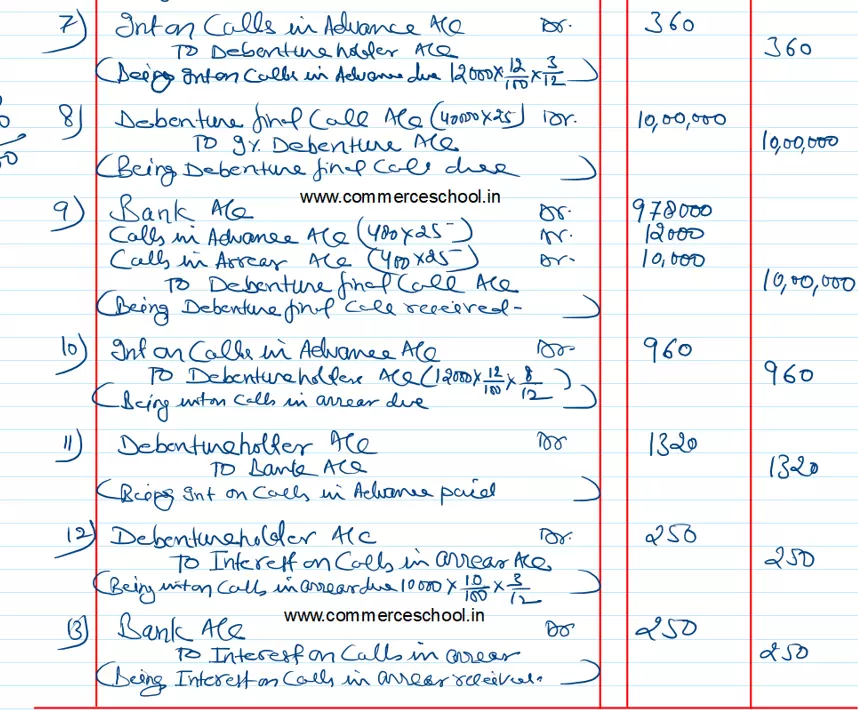 7) Int on Calls in Advance A/c Dr. 360
To Debenture holder A/c 360
(Being Int on Calls in Advance due 12000 × 12/100 × 3/12)
8) Debenture final Call A/c (40000 × 25) Dr. 10,00,000
To 9% Debenture A/c 10,00,000
(Being Debenture final Call due)
www.commerceschool.in
9) Bank A/c Dr. 978000
Calls in Advance A/c (400×25) Dr. 12000
Calls in Arrear A/c (400×25) Dr. 10,000
To Debenture final Call A/c 10,00,000
(Being Debenture final Call received)
10) Int on Calls in Advance A/c Dr. 960
To Debentureholders A/c (12000 × 12/100 × 8/12) 960
(Being int on Calls in arrear due)
11) Debentureholder A/c Dr 1320
To Bank A/c 1320
(Being Int on Calls in Advance paid)
12) Debentureholder A/c Dr. 250
To Interest on Calls in arrear A/c 250
(Being int on Calls in arrear due 10000 × 10/100 × 3/12)
www.commerceschool.in
13) Bank A/c Dr 250
To Interest on Calls in arrear 250
(Being Interest on Calls in arrear received.)